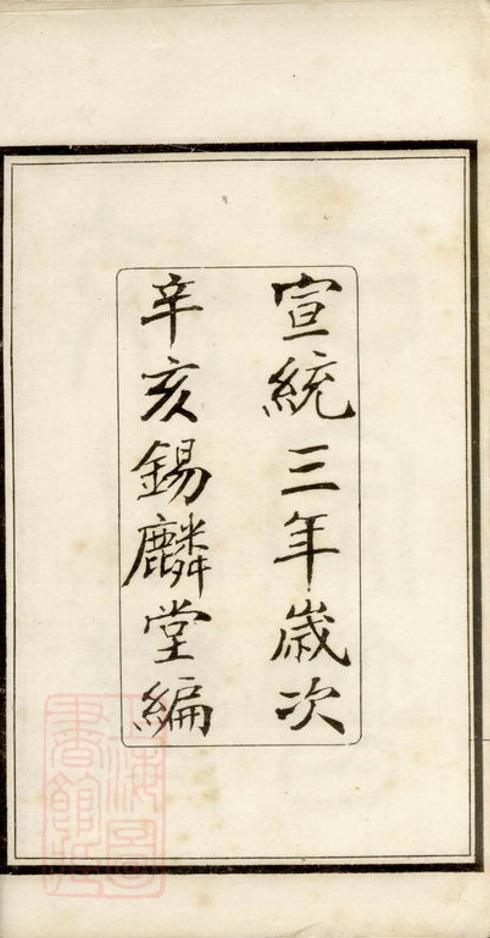 宣統三年歲次
辛亥錫麟堂編
上海圖
書館藏